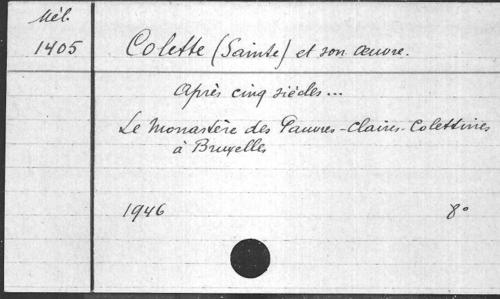 Mél.
1405
Colette (Sainte) et son œuvre.
Après cinq siècles...
Le Monastère des Pauvres-Claires-Colettines
à Bruxelles
1946 8°